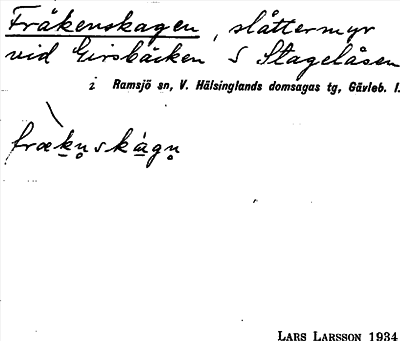 Fråkenskagen, slåttermyr
vid Girsbäcken S Stagelåsen
i Ramsjö sn, V. Hälsinglands domsagas tg, Gävleb. l.
frœkn̥skàgn̥
LARS LARSSON 1934